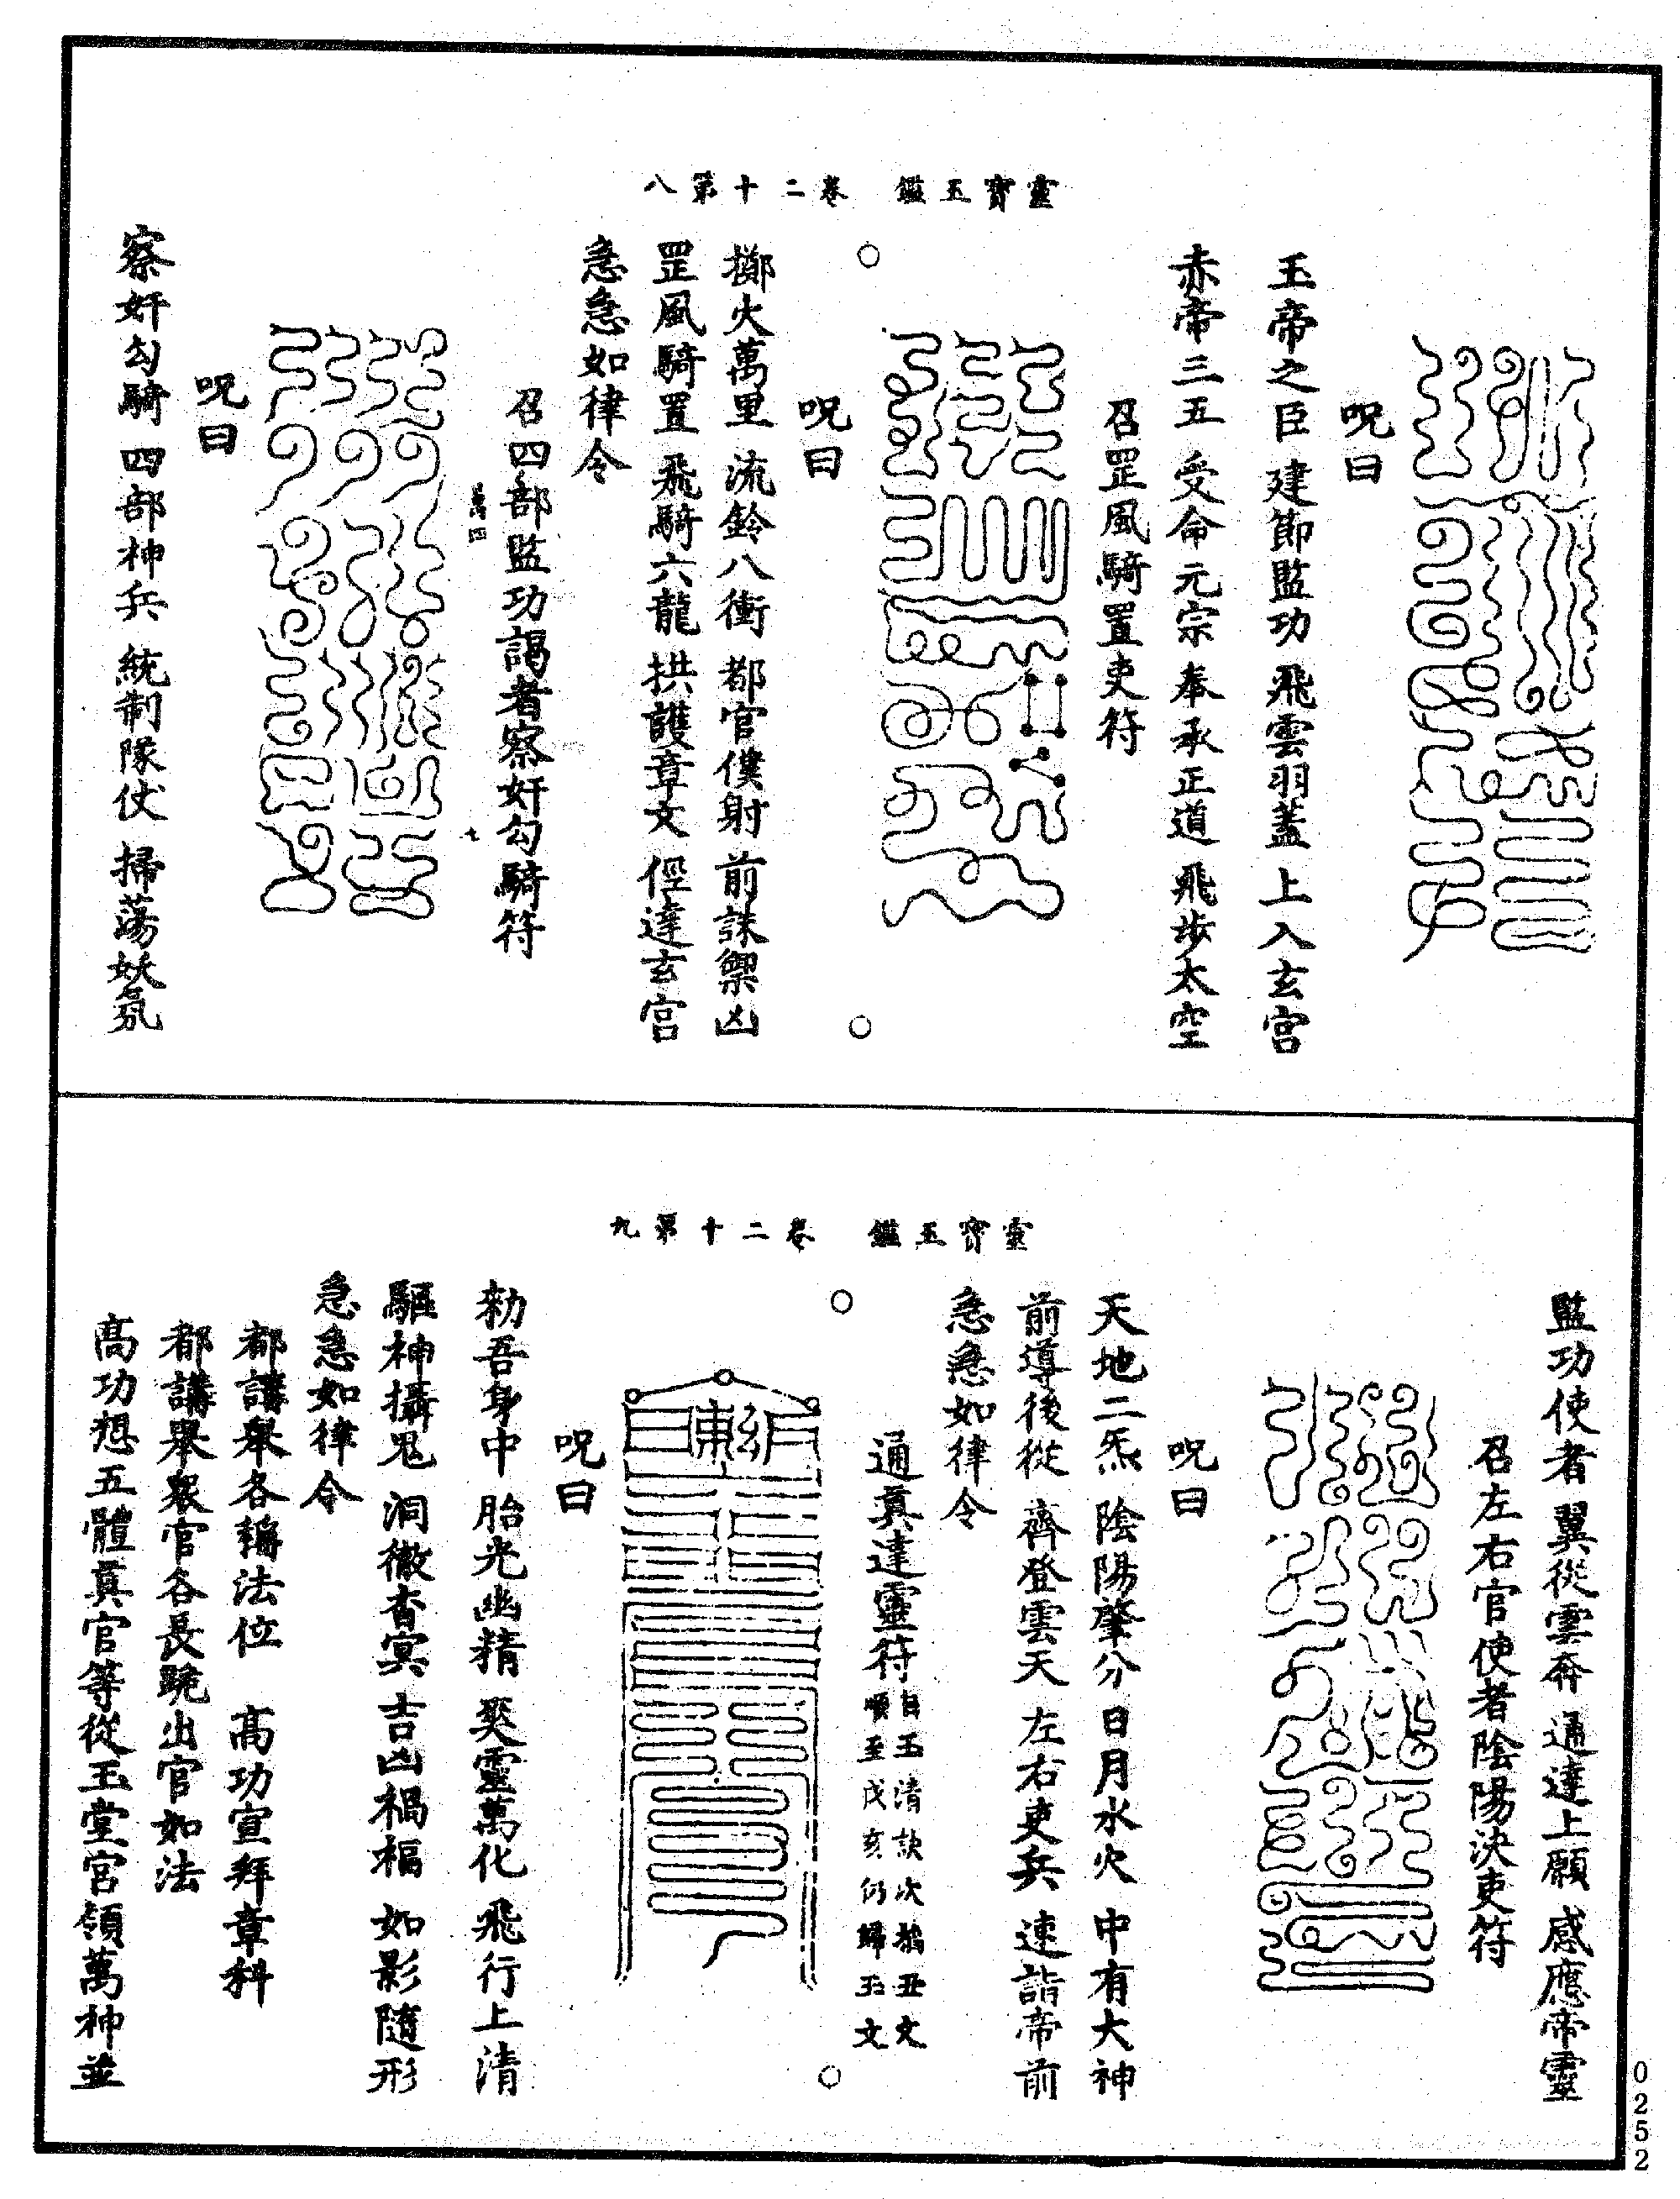 靈寶玉鑑　卷二十第八
呪曰
玉帝之臣　建節監功　飛雲羽蓋　上入玄宮
赤帝三五　受命元宗　奉承正道　飛步太空
召罡風騎置吏符
呪曰
擲火萬里　流鈴八衝　都官僕射　前誅禦凶
罡風騎置　飛騎六龍　拱護章文　徑達玄宮
急急如律令
召四部監功謁者察奸勾騎符
萬四　七
呪曰
察奸勾騎　四部神兵　統制隊仗　掃蕩妖氛
靈寶玉鑑　卷二十第九
監功使者　翼從雲奔　通達上願　感應帝靈
召左右官使者陰陽決吏符
呪曰
天地二炁　陰陽肇分　日月水火　中有大神
前導後從　齊登雲天　左右吏兵　速詣帝前
急急如律令
通眞達靈符自玉清訣次掐丑文
順至戌亥仍歸玉文
呪曰
勑吾身中　胎光幽精　爽靈萬化　飛行上清
驅神攝鬼　洞徹杳冥　吉凶禍福　如影隨形
急急如律令
都講舉各稱法位　高功宣拜章科
都講舉衆官各長跪出官如法
高功想五體眞官等從玉堂宮領萬神並
0252